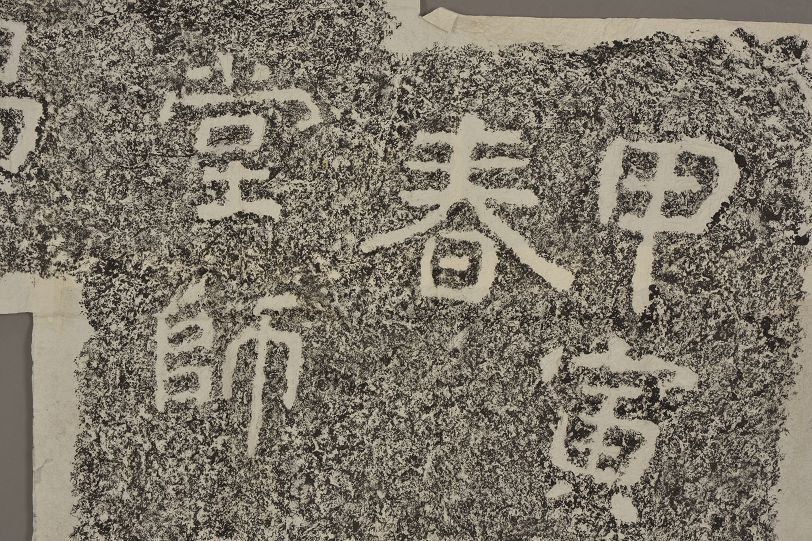 甲寅
春
堂師